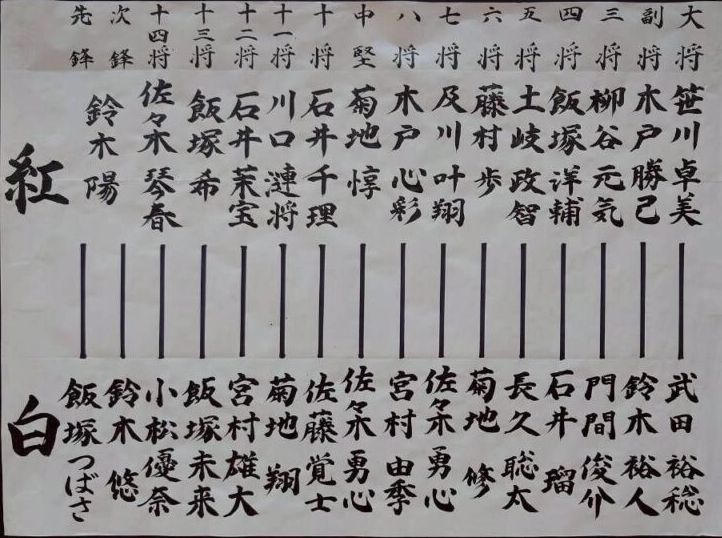 大将 笹川卓美
副将 木戸勝己
三将 柳谷元気
四将 飯塚洋輔
五将 土岐政智
六将 藤村歩
七将 及川叶翔
八将 木戸心彩
中堅 菊地惇
十将 石井千理
十一将 川口漣将
十二将 石井茉宝
十三将 飯塚希
十四将 佐々木琴春
次鋒 鈴木陽
先鋒
紅
武田裕稔
鈴木裕人
門間俊介
石井瑠
長久聡太
菊地修
佐々木勇心
宮村由季
佐々木勇心
佐藤覚士
菊地翔
宮村雄大
飯塚未来
小松優奈
鈴木悠
飯塚つばさ
白